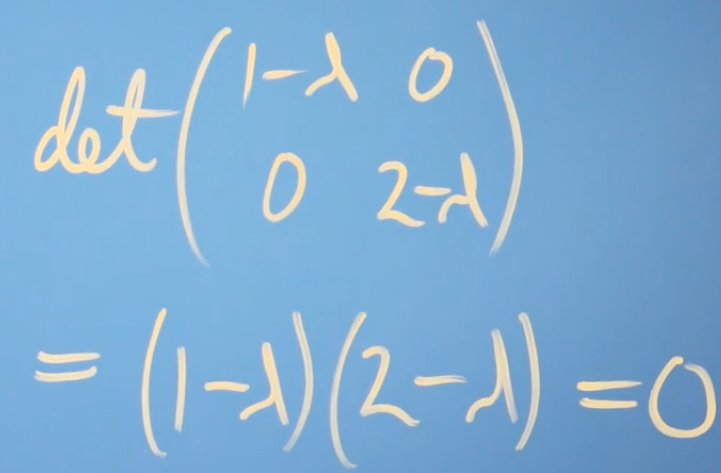 det(1-λ 0
0 2-λ)
= (1-λ)(2-λ) = 0